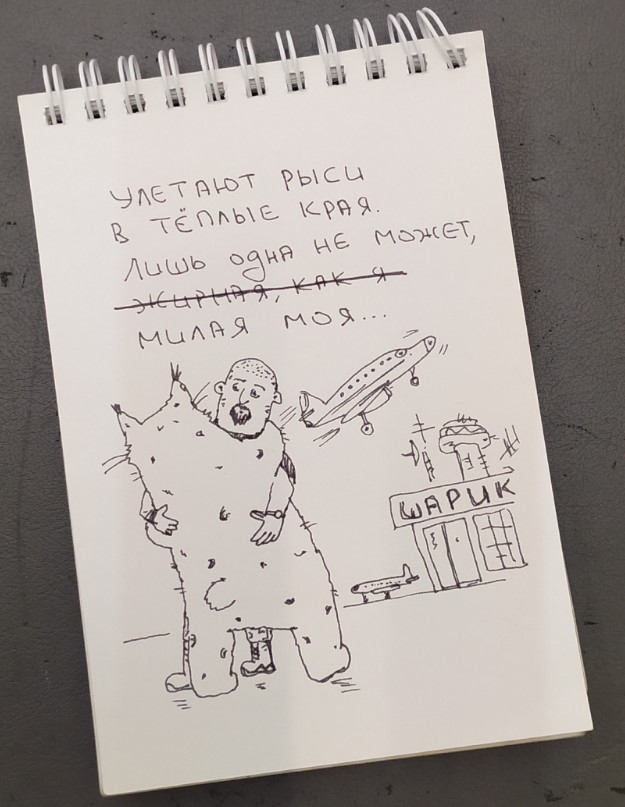 УЛЕТАЮТ РЫСИ
В ТЁПЛЫЕ КРАЯ.
ЛИШЬ ОДНА НЕ МОЖЕТ,
ЖИРНАЯ, КАК Я
МИЛАЯ МОЯ...
ШАРИК